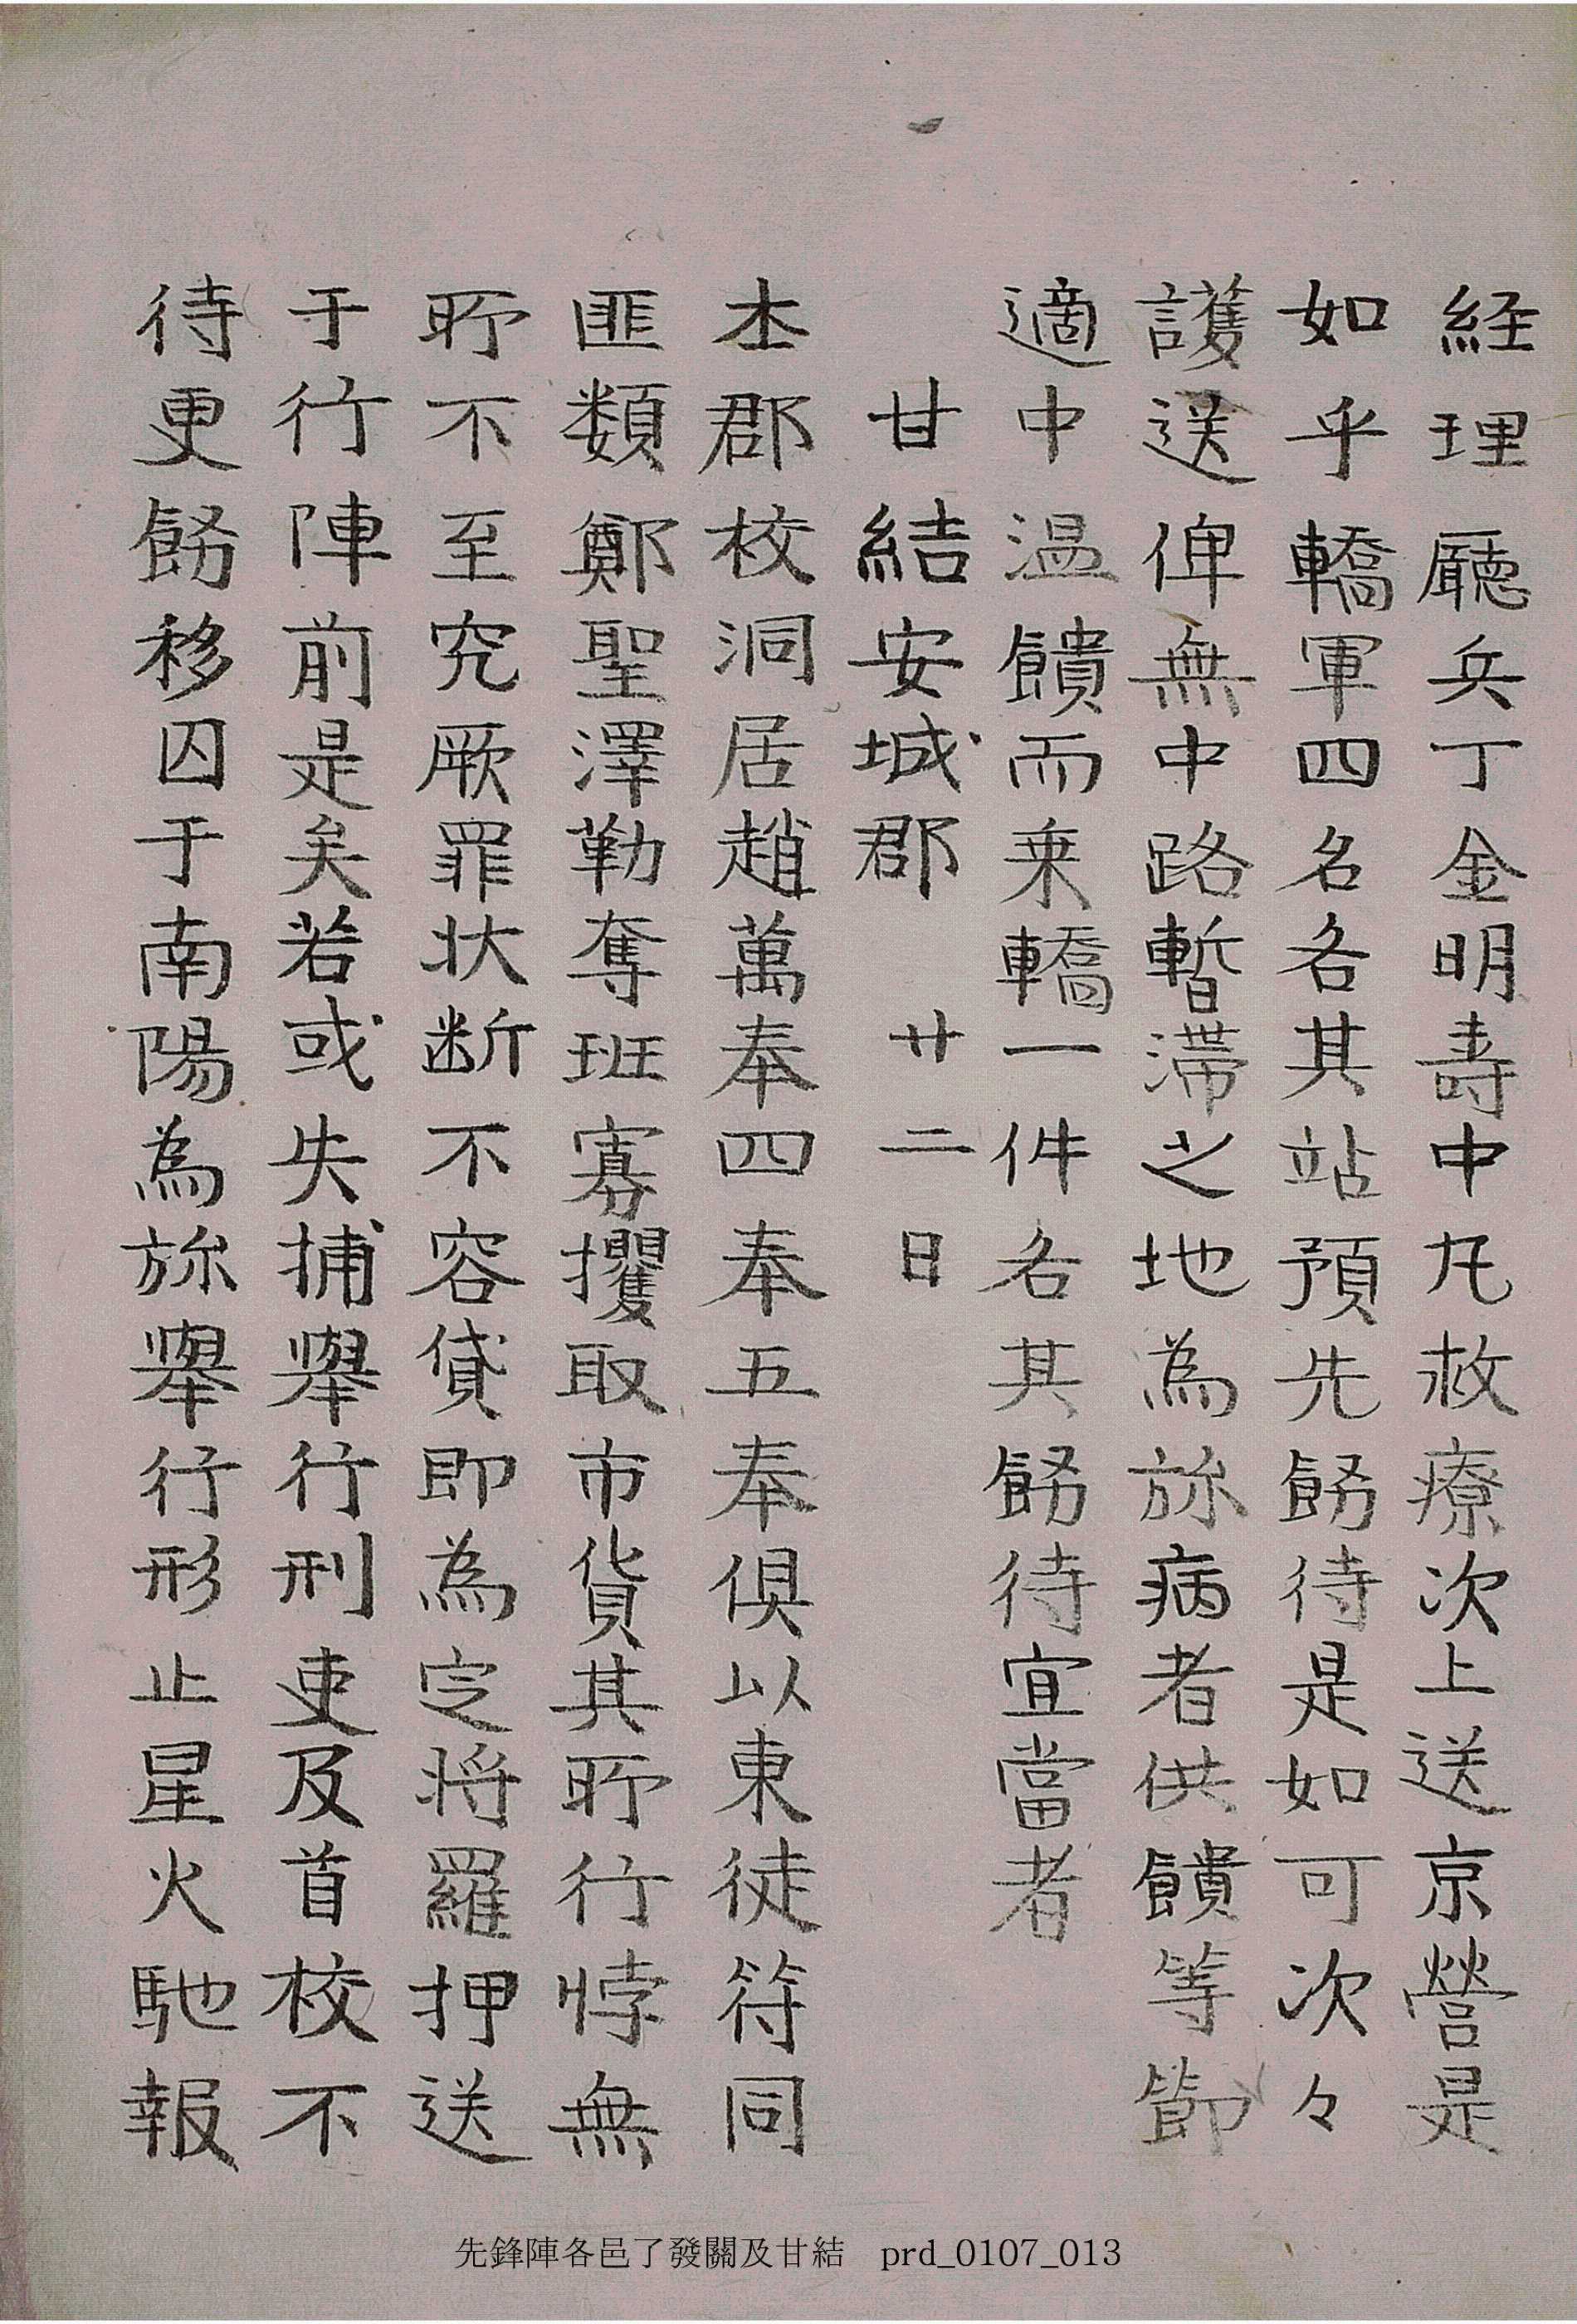 経理廳兵丁金明壽中丸救療次上送京營是
如乎轎軍四名各其站預先餙待是如可次々
護送俾無中路暫滯之地為旀病者供饋等節
適中温饋而乗轎一件各其餙待宜當者
甘結安城郡 廿二日
本郡校洞居趙萬奉四奉五奉俱以東徒符同
匪類鄭聖澤勒奪班寡攫取市貨其所行悖無
所不至究厥罪状断不容貸即為定将羅押送
于行陣前是矣若或失捕擧行刑吏及首校不
待更餙移囚于南陽為旀擧行形止星火馳報
先鋒陣各邑了發關及甘結 prd_0107_013